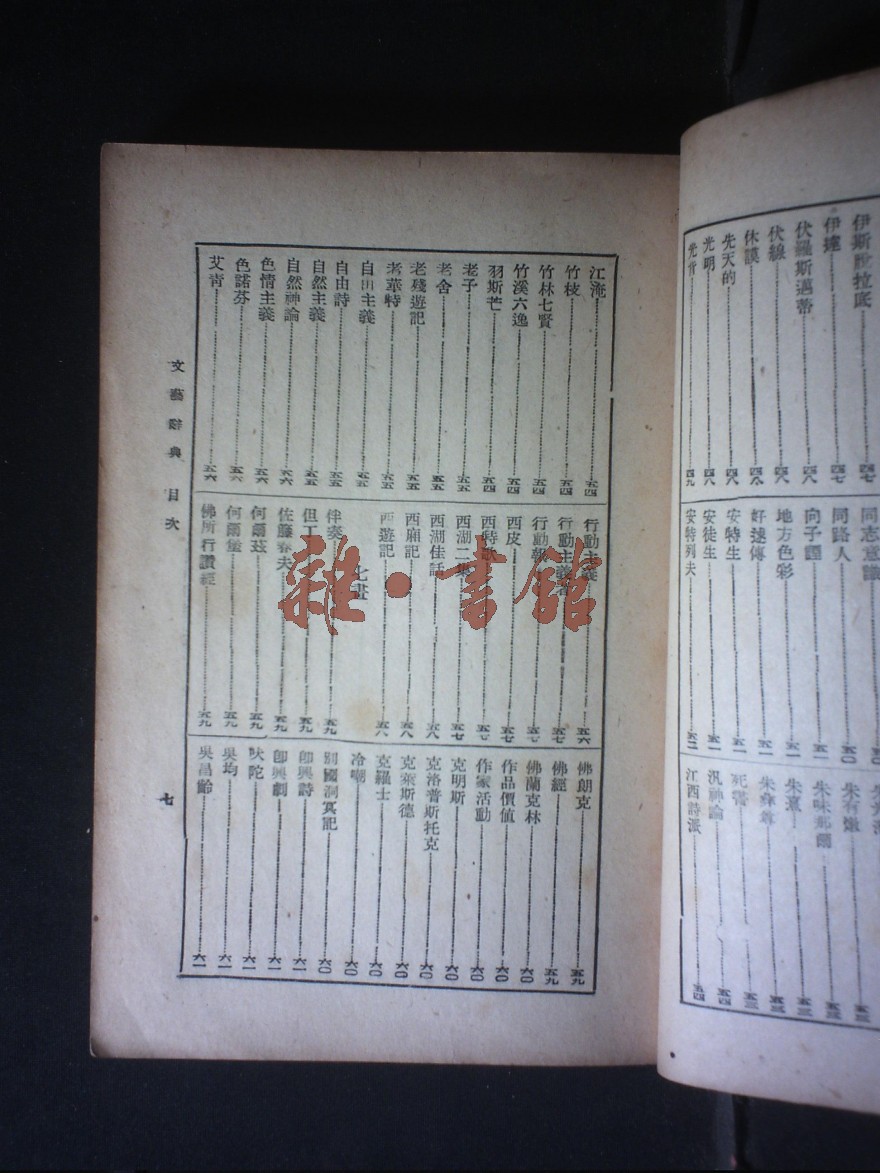 伊斯說拉底 四七
伊達 四七
伏羅斯邁蒂 四八
伏線 四八
休謨 四八
先天的 四八
光明 四八
光背 四九
同志意識
同路人 五〇
向子諲 五一
地方色彩 五一
好逑傳 五一
安特生 五一
安徒生 五一
安特列夫 五二
朱有燉 五三
朱味那爾 五三
朱熹 五三
朱彝尊 五三
死霛 五三
汎神論 五四
江西詩派 五四
江淹 五四
竹枝 五四
竹林七賢 五四
竹溪六逸 五四
羽斯芒 五四
老子 五五
老舍 五五
老殘遊記 五五
考華特 五五
自由主義 五五
自由詩 五五
自然主義 五五
自然神論 五六
色情主義 五六
色諾芬 五六
艾青 五六
行動主義 五六
行動主義者 五七
行動報 五七
西皮 五七
西詩 五七
西湖二集 五七
西湖佳話 五八
西廂記 五八
西遊記 五八
七畫
伴奏 五九
但丁 五九
佐藤春夫 五九
何爾茲 五九
何爾堡 五九
佛所行讚經 五九
佛朗克 五九
佛經 五九
佛蘭克林 六〇
作品價值 六〇
作家活動 六〇
克明斯 六〇
克洛普斯托克 六〇
克萊斯德 六〇
克羅士 六〇
冷嘲 六〇
別國洞冥記 六〇
即興詩 六一
即興劇 六一
吠陀 六一
吳均 六一
吳昌齡 六一
文藝辭典 目次
七
雜·書館